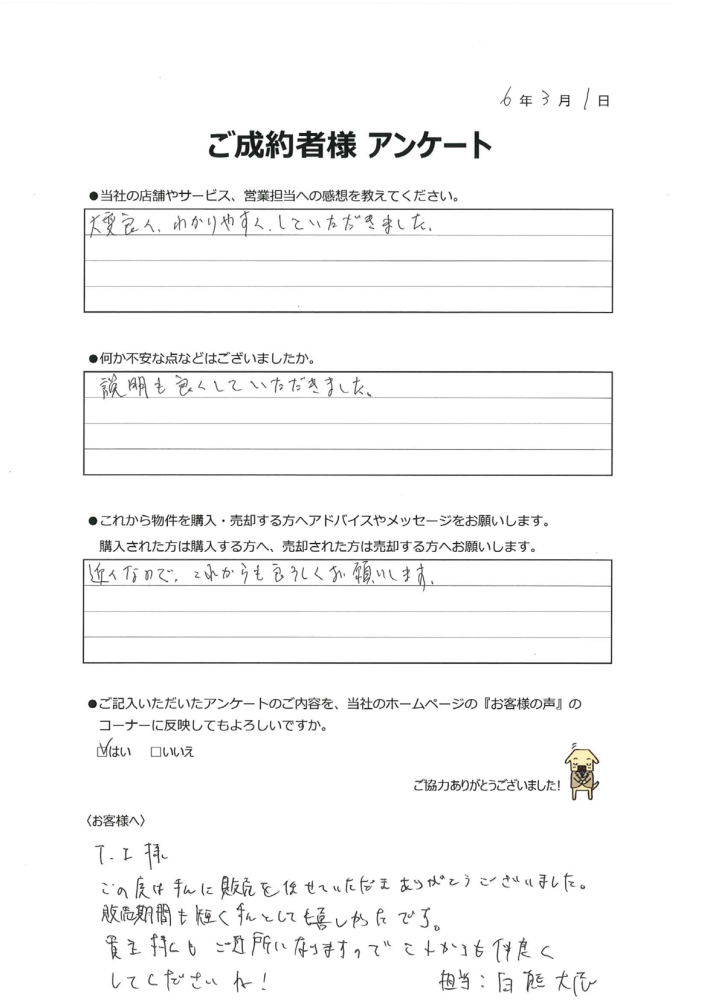 6年3月1日
ご成約者様 アンケート
●当社の店舗やサービス、営業担当への感想を教えてください。
大変良く、わかりやすく、していただきました。
●何か不安な点などはございましたか。
説明も良くしていただきました。
●これから物件を購入・売却する方へアドバイスやメッセージをお願いします。
購入された方は購入する方へ、売却された方は売却する方へお願いします。
近くなので、これからも良ろしくお願いします。
●ご記入いただいたアンケートのご内容を、当社のホームページの『お客様の声』の
コーナーに反映してもよろしいですか。
☑はい □いいえ
ご協力ありがとうございました!
〈お客様へ〉
T.I様
この度は私に販売を任せていただきありがとうございました。
販売期間も短く私としても嬉しかったです。
様にもご近所になりますのでこれからも仲良く
してくださいね!
担当:白熊